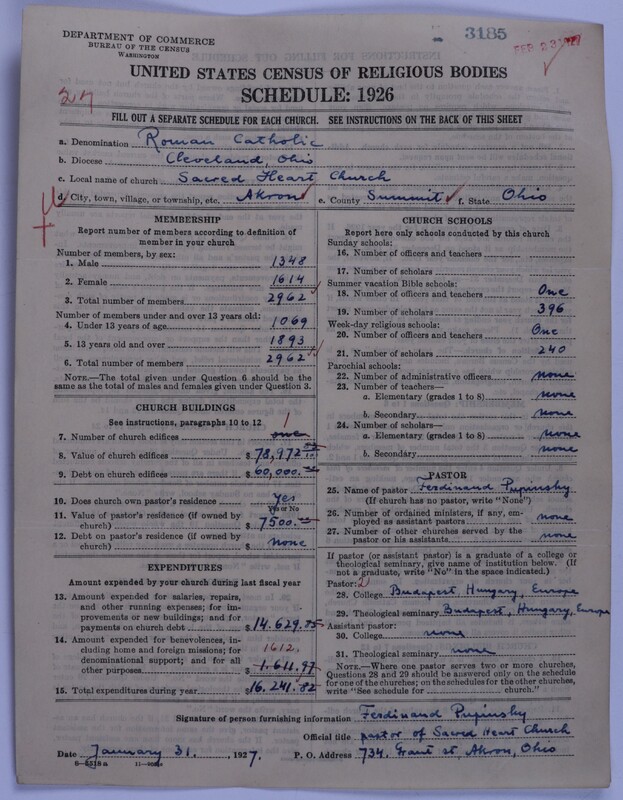 3185
FEB 23 1927
DEPARTMENT OF COMMERCE
BUREAU OF THE CENSUS
WASHINGTON
UNITED STATES CENSUS OF RELIGIOUS BODIES
SCHEDULE: 1926
27
FILL OUT A SEPARATE SCHEDULE FOR EACH CHURCH. SEE INSTRUCTIONS ON THE BACK OF THIS SHEET
a. Denomination Roman Catholic
b. Diocese Cleveland, Ohio
c. Local name of church Sacred Heart Church
d. City, town, village, or township, etc. Akron e. County Summit f. State Ohio
MEMBERSHIP
Report number of members according to definition of
member in your church
Number of members, by sex:
1. Male 1348
2. Female 1614
3. Total number of members 2962
Number of members under and over 13 years old:
4. Under 13 years of age 1069
5. 13 years old and over 1893
6. Total number of members 2962
NOTE.—The total given under Question 6 should be
same as the total of males and females given under Question 3.
CHURCH BUILDINGS
See instructions, paragraphs 10 to 12
7. Number of church edifices one 1
8. Value of church edifices $ 78,972
9. Debt on church edifices $ 60,000.
10. Does church own pastor's residence Yes
Yes or No
11. Value of pastor's residence (if owned by
church) $ 7500.
12. Debt on pastor's residence (if owned by
church) $ none
EXPENDITURES
Amount expended by your church during last fiscal year
13. Amount expended for salaries, repairs,
and other running expenses; for im-
provements or new buildings; and for
payments on church debt $ 14.629.85
14. Amount expended for benevolences, in-
cluding home and foreign missions; for
denominational support; and for all
other purposes 1612. $ 1.611.97
15. Total expenditures during year $ 16.241.82
CHURCH SCHOOLS
Report here only schools conducted by this church
Sunday schools:
16. Number of officers and teachers
17. Number of scholars
Summer vacation Bible schools:
18. Number of officers and teachers One
19. Number of scholars 396
Week-day religious schools:
20. Number of officers and teachers One
21. Number of scholars 240
Parochial schools:
22. Number of administrative officers none
23. Number of teachers—
a. Elementary (grades 1 to 8) none
b. Secondary none
24. Number of scholars—
a. Elementary (grades 1 to 8) none
b. Secondary none
PASTOR
25. Name of pastor Ferdinand Pupinsky
(If church has no pastor, write "None")
26. Number of ordained ministers, if any, em-
ployed as assistant pastors none
27. Number of other churches served by the
pastor or his assistants none
If pastor (or assistant pastor) is a graduate of a college or
theological seminary, give name of institution below. (If
not a graduate, write "No" in the space indicated.)
Pastor: 2
28. College Budapest, Hungary, Europe
29. Theological seminary Budapest, Hungary, Europe
Assistant pastor:
30. College none
31. Theological seminary none
NOTE.—Where one pastor serves two or more churches,
Questions 28 and 29 should be answered only on the schedule
for one of the churches; on the schedules for the other churches,
write "See schedule for church."
Signature of person furnishing information Ferdinand Pupinsky
Official title pastor of Sacred Heart Church
Date January 31., 1927. P. O. Address 734. Grant st, Akron, Ohio